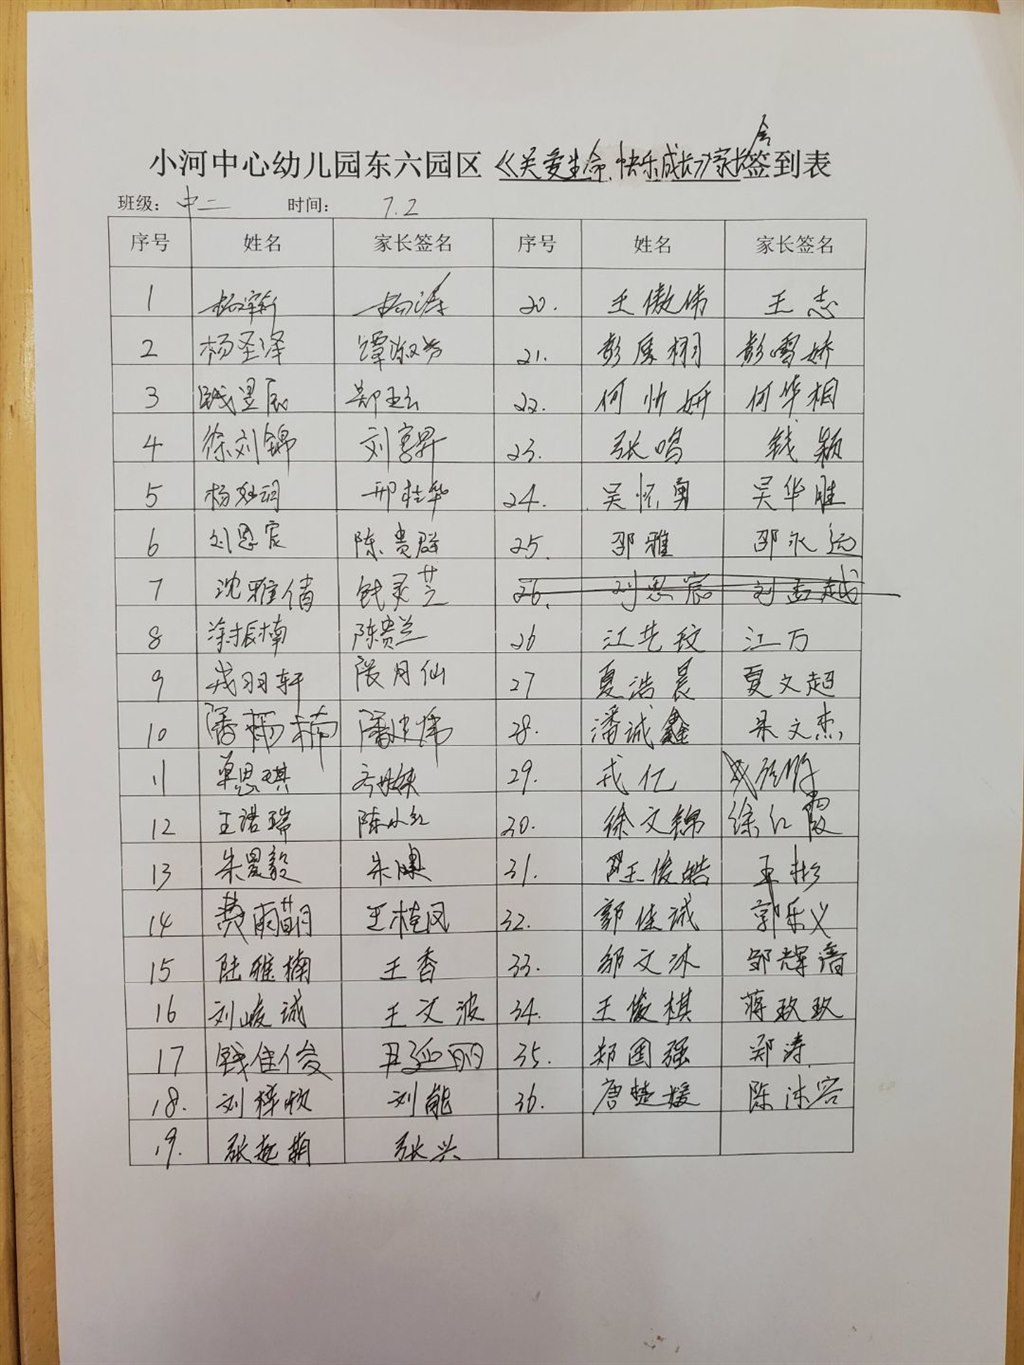 小河中心幼儿园东六园区《关爱生命、快乐成长》家长会签到表
班级：中二 时间：7.2
序号 姓名 家长签名 序号 姓名 家长签名
1 杨 20. 王傲伟 王志
2 杨圣泽 谭淑芳 21. 彭厚栩 彭雪娇
3 钱昱辰 郑 22. 何忻妍 何华相
4 徐刘锦 刘享昇 23. 张鸣 钱颖
5 杨 邢桂华 24. 吴怀勇 吴华胜
6 刘恩宸 陈贵群 25. 邵雅 邵永运
7 沈雅倩 钱灵芝 26. 刘思宸 刘孟越
8 涂振楠 陈贵兰 26 江艺玟 江万
9 戎羽轩 殷月仙 27 夏浩晨 夏文超
10 潘杨楠 潘建炜 28. 潘诚鑫 朱文杰
11 卓思琪 29. 戎仁
12 王诺瑞 陈小红 30. 徐文锦 徐红霞
13 朱昱毅 朱 31. 王俊皓 王彬
14 黄雨萌 王桂凤 32. 郭佳诚 郭乐义
15 陆雅楠 王香 33. 邹文沐 邹辉
16 刘峻诚 王文波 34. 王俊棋 蒋玖玖
17 钱佳俊 尹延丽 35. 郑国强 郑涛
18. 刘梓牧 刘能 36. 唐楚媛 陈沐容
19. 张起萌 张兴